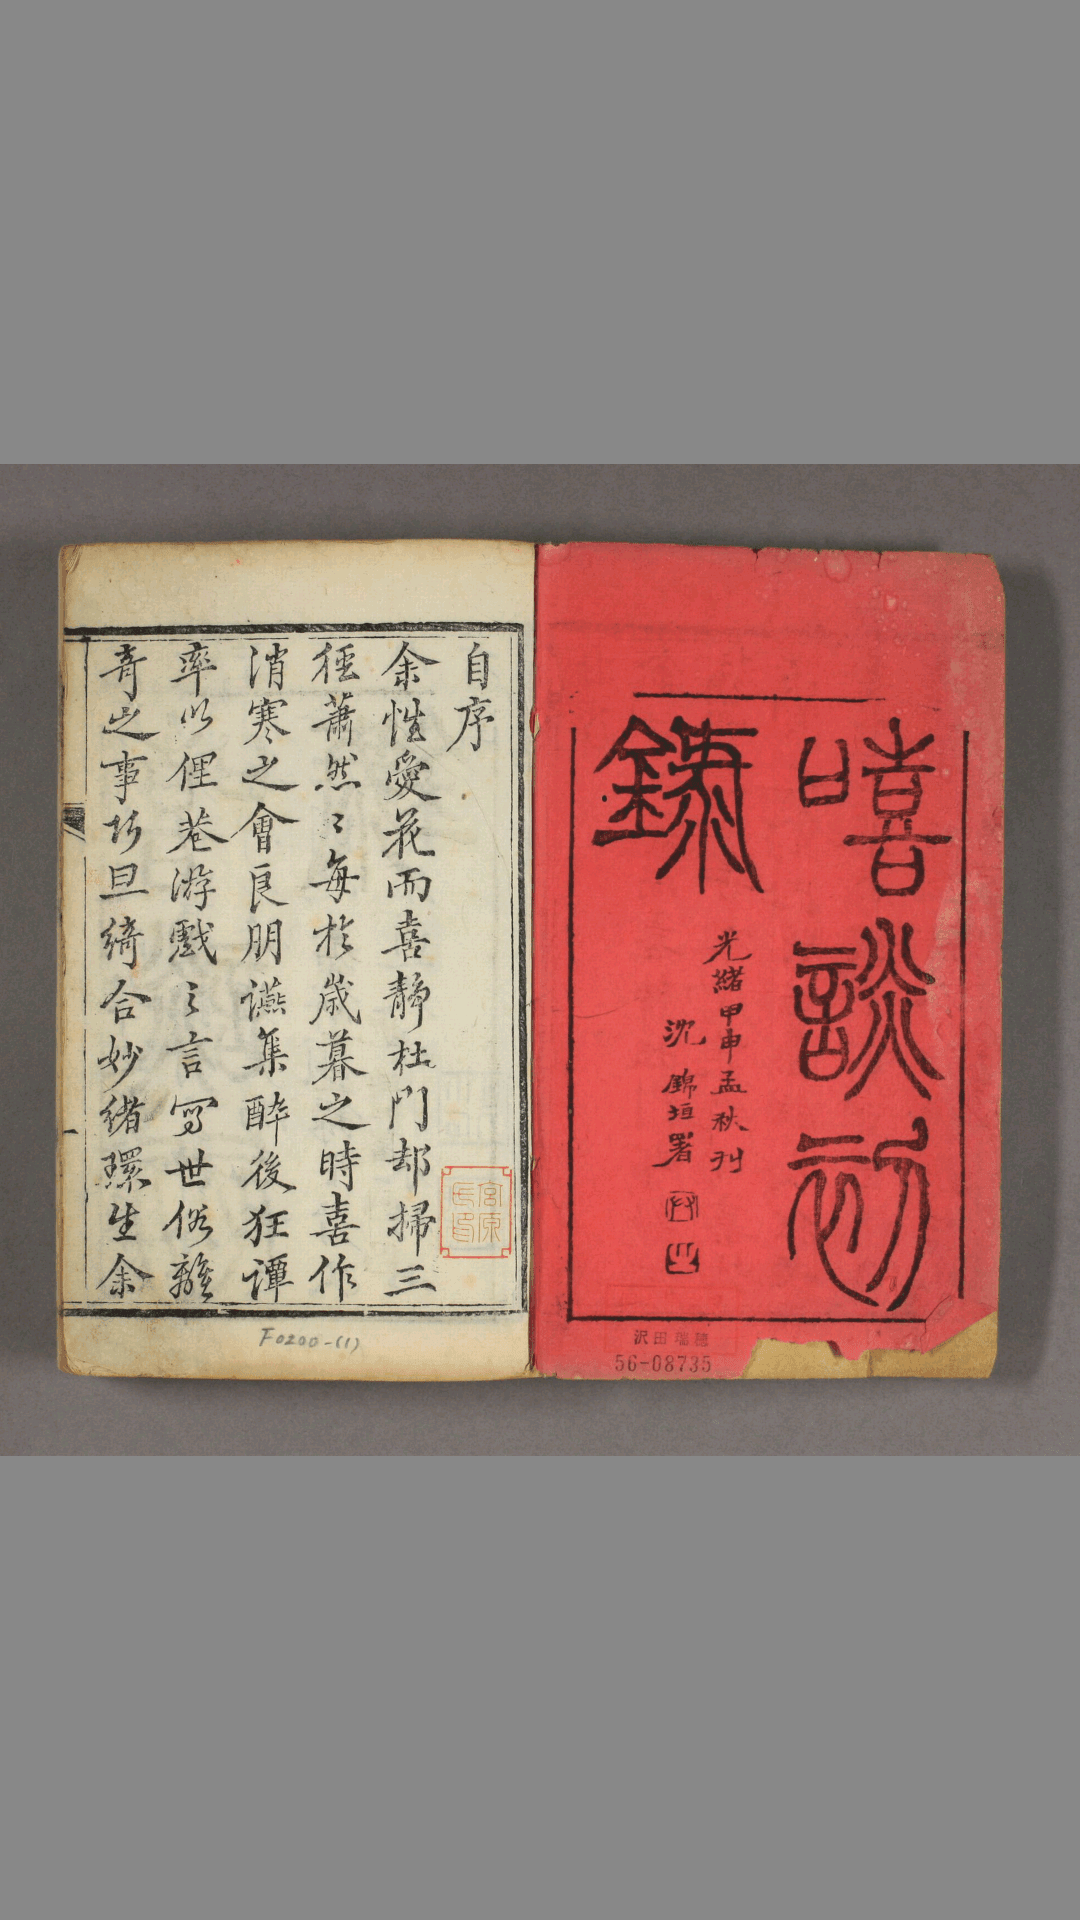 嘻談初
錄
光緒甲申孟秋刊
沈錦垣署
沢田瑞穂
56-08735
自序
余性愛花而喜靜杜門却掃三
徑蕭然〻每於歲暮之時喜作
消寒之會良朋讌集醉後狂譚
率以俚巷游戲之言寫世俗離
奇之事乃且綺合妙緒環生余
宮原
F0200-(1)